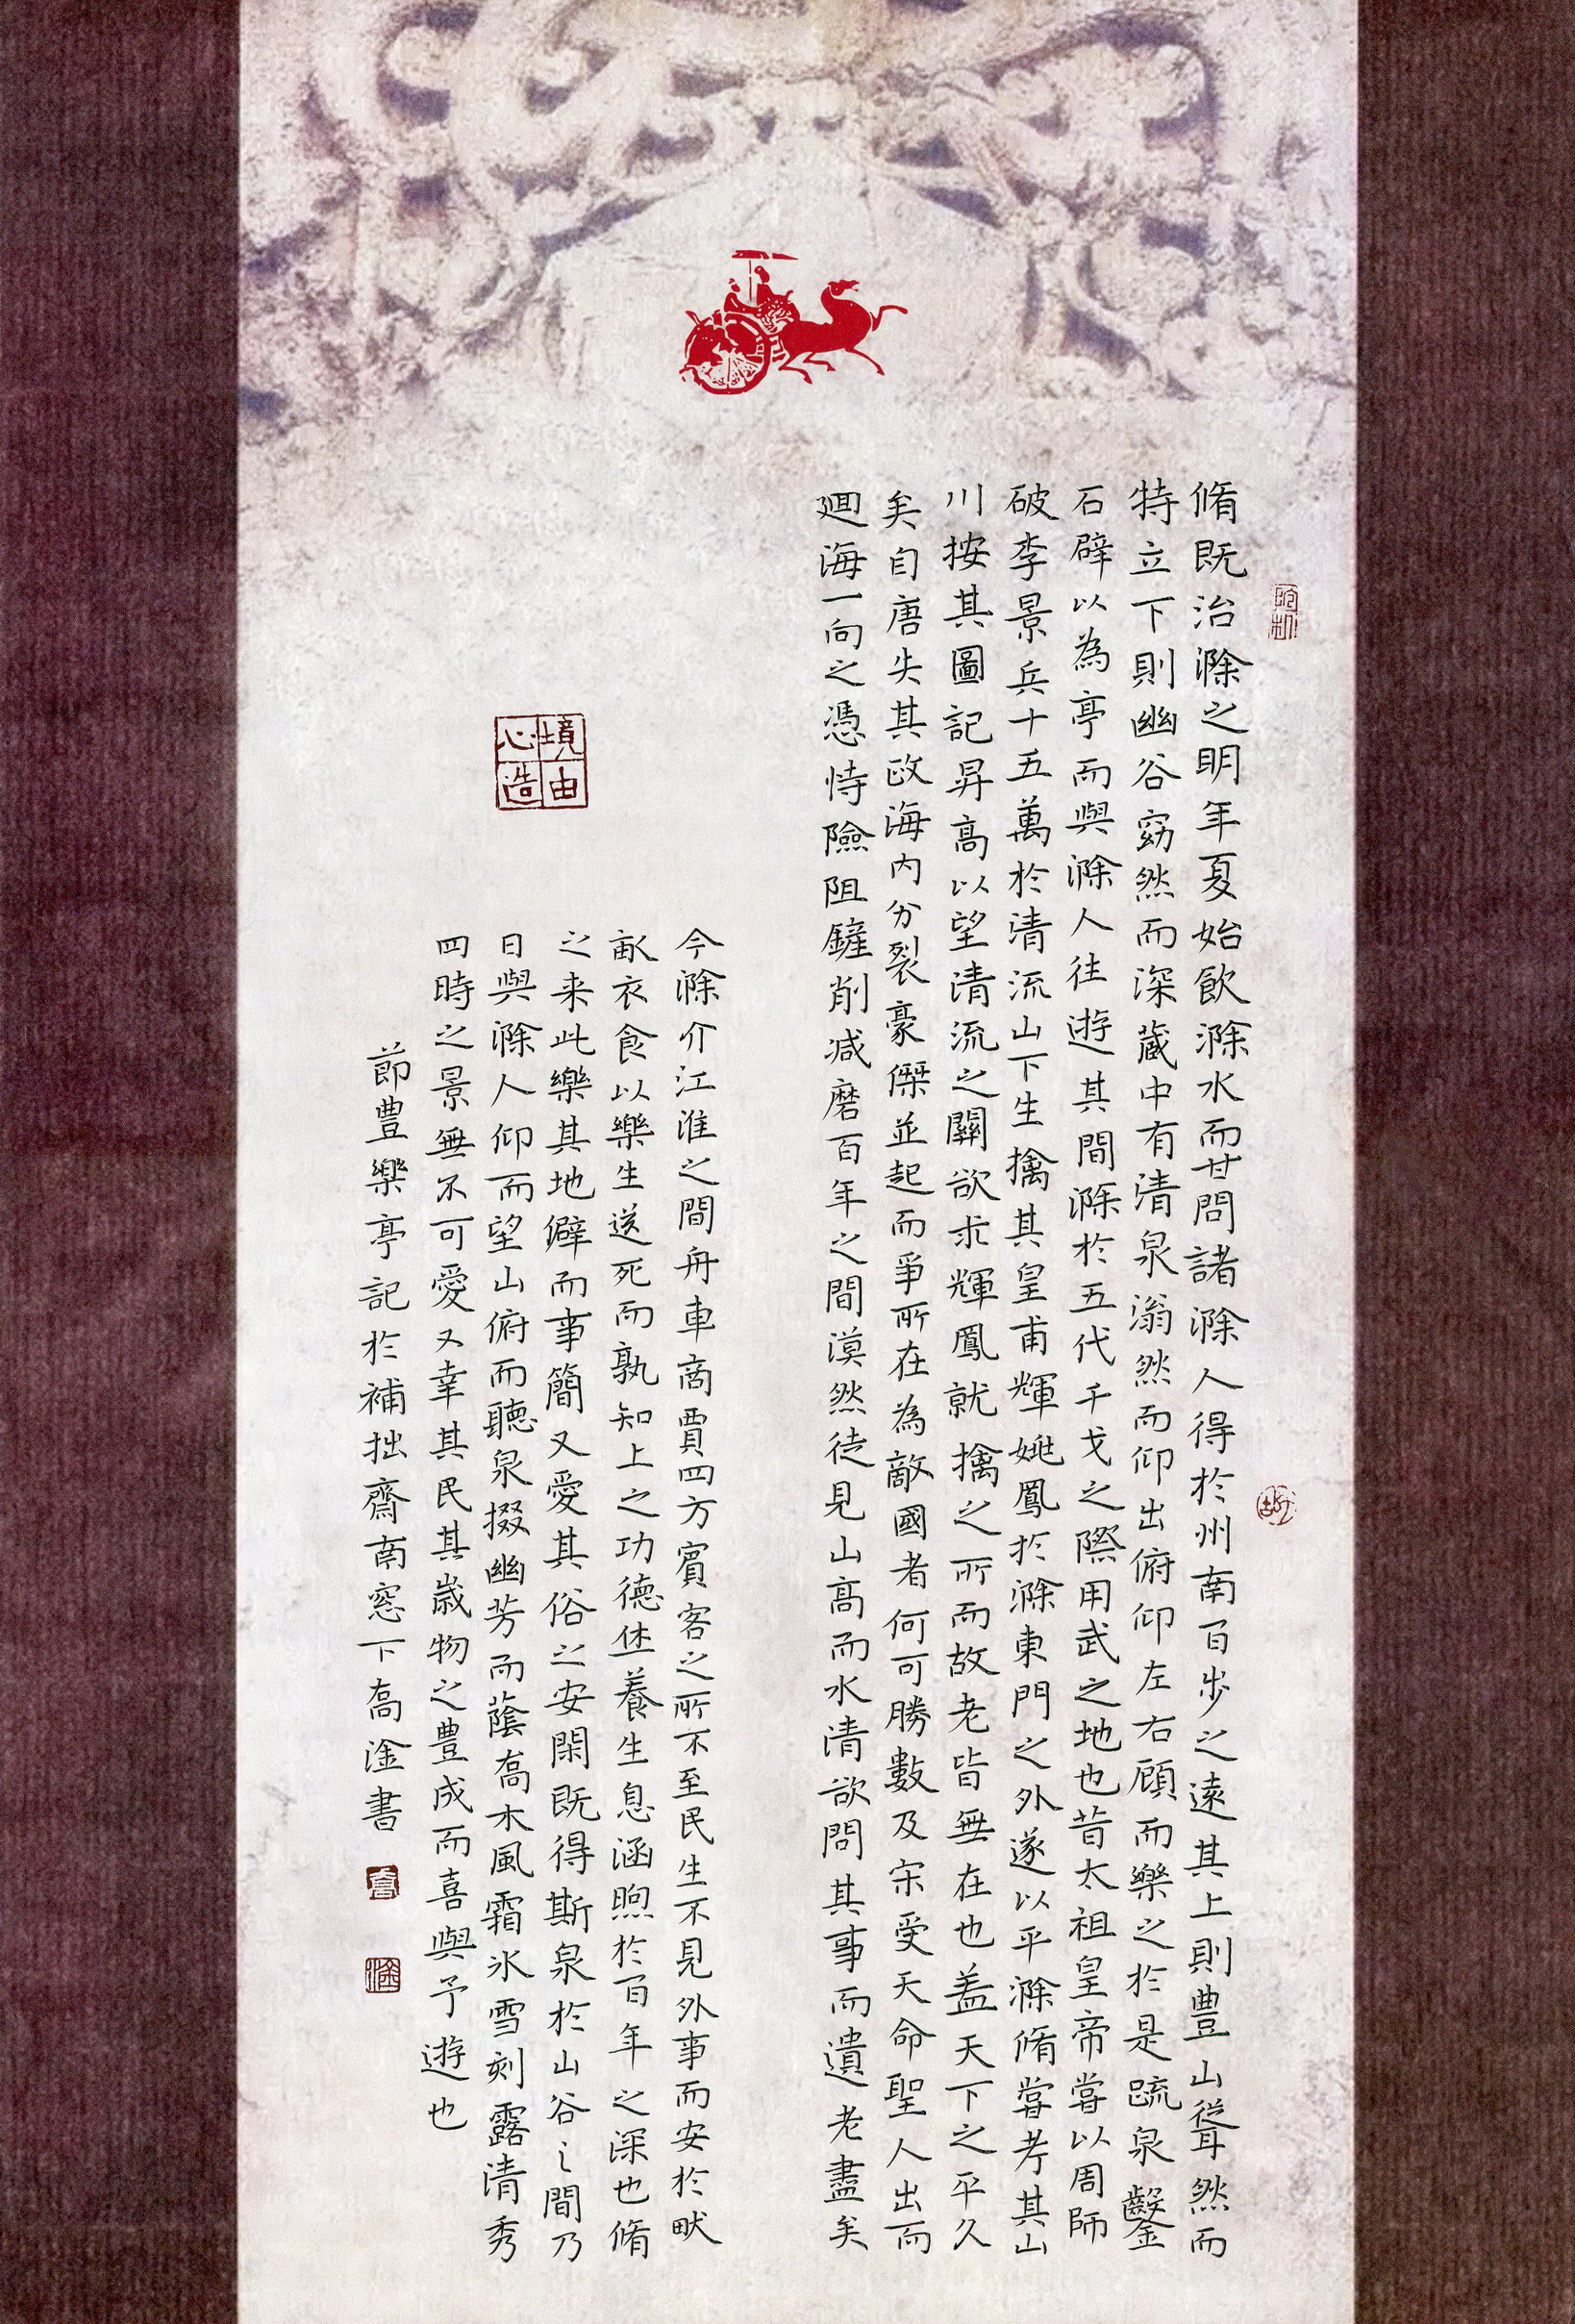 脩既治滁之明年夏始飲滁水而甘問諸滁人得於州南百步之遠其上則豊山聳然而
特立下則幽谷窈然而深藏中有清泉滃然而仰出俯仰左右顧而樂之於是疏泉鑿
石辟以為亭而與滁人往遊其間滁於五代干戈之際用武之地也昔太祖皇帝嘗以周師
破李景兵十五萬於清流山下生擒其皇甫輝姚鳳於滁東門之外遂以平滁脩嘗考其山
川按其圖記昇高以望清流之關欲求輝鳳就擒之所而故老皆無在也盖天下之平久
矣自唐失其政海内分裂豪傑並起而爭所在為敵國者何可勝數及宋受天命聖人出而
迴海一向之憑恃險阻鏟削減磨百年之間漠然徒見山高而水清欲問其事而遺老盡矣
今滁介江淮之間舟車商賈四方賓客之所不至民生不見外事而安於畎
畝衣食以樂生送死而孰知上之功德休養生息涵煦於百年之深也脩
之来此樂其地僻而事簡又愛其俗之安閑既得斯泉於山谷之間乃
日與滁人仰而望山俯而聽泉掇幽芳而蔭喬木風霜氷雪刻露清秀
四時之景無不可愛又幸其民其歲物之豊成而喜與予遊也
節豊樂亭記於補拙齋南窓下高淦書
境由心造